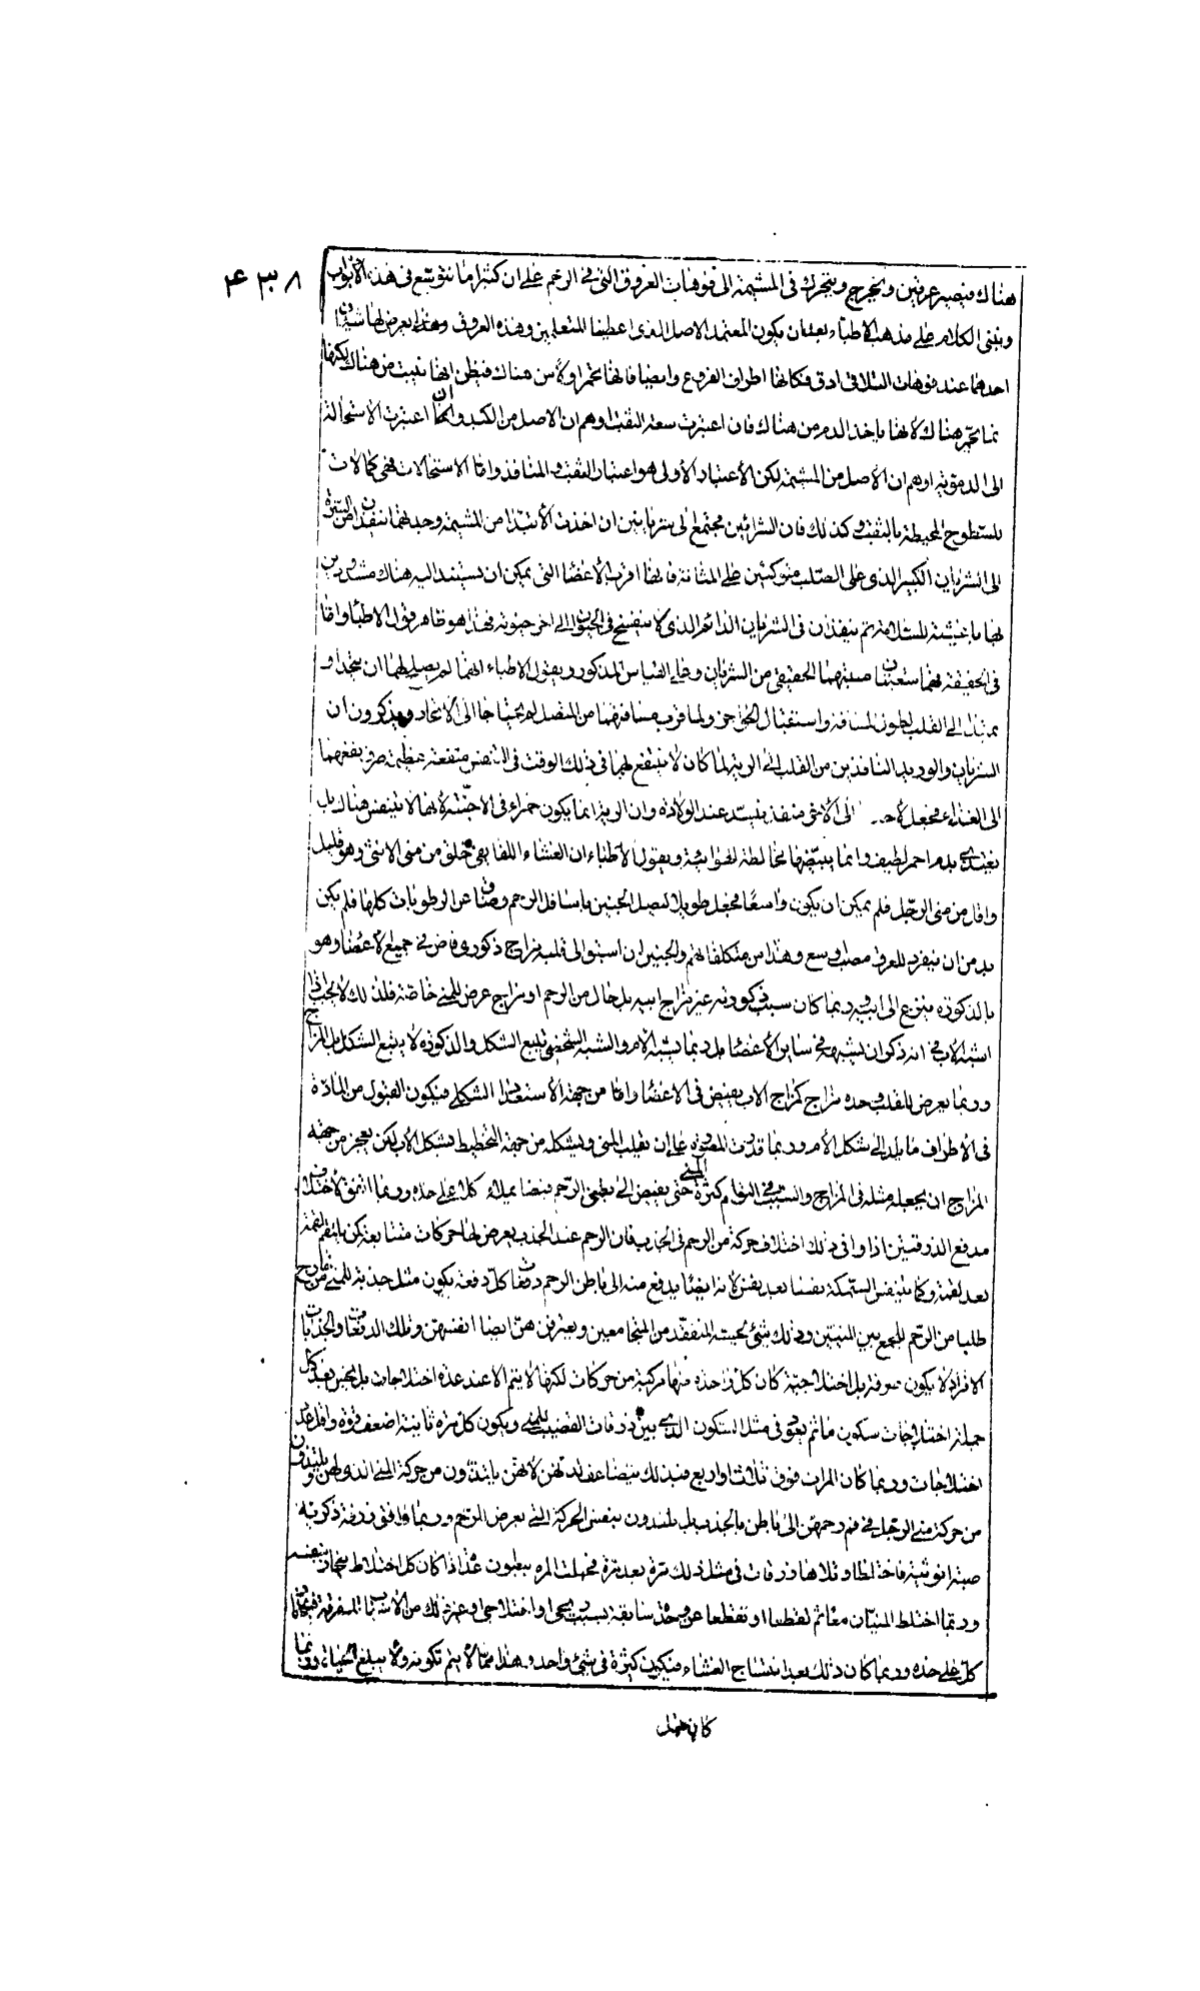 ٤٣٨
هناك فيصير عرقين ويخرج ويتحرك فى المشيمة الى فوهات العروق التى فى الرحم على ان كثيرا ما نتوسع فى هذه الابواب
ونبنى الكلام على مذهب الاطباء بعد ان يكون المعتمد الاصل الذى اعطينا للمتعلمين وهذه العروق وهذا يعرض لها شيئان
احدهما عند فوهات التلاقى ادق فكانها اطراف الفروع وايضا فانها تحمر اولا من هناك فيظن انها نبتت من هناك لكنها
انما تحمر هناك لانها ياخذ الدم من هناك فان اعتبرت سعة الثقب اوهم ان الاصل من الكبد وان اعتبرت الاستحالة
الى الدموية اوهم ان الاصل من المشيمة لكن الاعتبار الاولى هو اعتبار الثقب والمنافذ واما الاستحالات فهى كمالات
للسطوح المحيطة بالثقب وكذلك فان الشرائين مجتمع الى شريانين ان اخذت الابتداء من المشيمة وجدتهما ينفذان من السرة
الى الشريان الكبير الذى على الصلب متوكئين على المثانة فانها اقرب الاعضاء التى يمكن ان يستند اليه هناك مشدودين
بها باغشية للسلامة ثم ينفذان فى الشريان الدائم الذى لا ينفسخ فى الحيوان الى اخر حيوته فهذا هو ظاهر قول الاطباء واما
فى الحقيقة فهما شعبتان منبتهما الحقيقى من الشريان وعلى القياس المذكور ويقول الاطباء انهما لم يصلح لهما ان يتحدا و
يمتدا الى القلب لطول المسافة واستقبال الحواجز ولما قرب مسافتهما من المتصل لم يحتاجا الى الاتحاد ويذكرون ان
الشريان والوريد النافذين من القلب الى الرية لما كان لا ينتفع بهما فى ذلك الوقت فى التنفس منفعة عظيمة صرف نفعهما
الى الغذاء فجعل لاحد الى الاخر منفذ ينسد عند الولادة وان الرية انما يكون حمراء فى الاجنة لانها لا يتنفس هناك بل
يغتذى بدم احمر لطيف وانما يبيضها مخالطة الهوائية ويقول الاطباء ان الغشاء اللفائفى خلق من منى الانثى وهو قليل
واقل من منى الرجل فلم يمكن ان يكون واسعا فجعل طويلا ليصل الجنين باسافل الرحم وضاق عن الرطوبات كلها فلم يكن
بد من ان يفرد للعرق مصب وسع وهذا من متكلفاتهم والجنين ان استولى قلبه مزاج ذكورى فاض فى جميع الاعضاء وهو
بالذكورة ينزع الى ابيه وربما كان سبب ذكورته غير مزاج ابيه بل حال من الرحم او مزاج عرض للمنى خاصة فلذلك لا يجب اذا
اشبه الاب فى انه ذكر ان يشبهه فى ساير الاعضاء بل ربما يشبه الام والشبه الشخصى يتبع الشكل والذكورة لا يتبع الشكل بل المزاج
وربما يعرض للقلب وحده مزاج كمزاج الاب يفيض فى الاعضاء واما من جهة الاستعداد الشكلى فيكون القبول من المادة
فى الاطراف مايلا الى شكل الام وربما قدرت المصورة على ان يغلب المنى ويشكله من جهة التخطيط بشكل الاب لكن يعجز من جهة
المزاج ان يجعله مثله فى المزاج والسبب فى التوام كثرة المنى حتى يفيض الى بطنى الرحم فيضا يملاء كلا على حده وربما اتفق لاختلاف
مدفع الذرقتين اذا وافى ذلك اختلاف حركة من الرحم فى الجذب فان الرحم عند الجذب يعرض لها حركات متتابعة كمن يلتقم لقمة
بعد لقمة وكما يتنفس السمكة نفسا بعد نفس لانه ايضا يدفع منه الى باطن الرحم دفعا كل دفعة يكون مثل جذبة للمنى من خارج
طلبا من الرحم للجمع بين المنيين وذلك شئ يحسه المتفقد من المجامعين ويعرفن هن ايضا انفسهن وتلك الدفعات والجذبات
الافراد لا يكون صرفة بل اختلاجية كان كل واحده منها مركبة من حركات لكنها لا يتم الا عند عدة اختلاجات بل يحس بعد كل
جملة اختلاجات سكون ما ثم يعود فى مثل السكون الذى بين ذرقات القضيب للمنى ويكون كل مرة ثانية اضعف قوة واقل عدد
اختلاجات وربما كان المرات فوق ثلاث او اربع فبذلك يتضاعف لذتهن لانهن يلتذون من حركة المنى الذى لهن ويلتذون
من حركة منى الرجل فى فم رحمهن الى باطن بالجذب بل يلتذون بنفس الحركة التى يعرض الرحم وربما وافق زرقة ذكرية
صبة انوثية فاختلطا وتلاها ذرقات فى مثل ذلك مرة بعد مرة فحبلت المرءة ببطون عدة اذا كان كل اختلاط ينحاز بنفسه
وربما اختلط المنيان معا ثم تقطعا او تقطعا عن وحدة سابقة بسبب ريحى او اختلاجى او غير ذلك من الاسباب المفرقة فينحاز
كل على حده وربما كان ذلك بعد انتساج الغشاء فيكون كثيرة فى شئ واحد وهذا مما لا يتم تكونه ولا يبلغ الحياة وربما
كان قبل